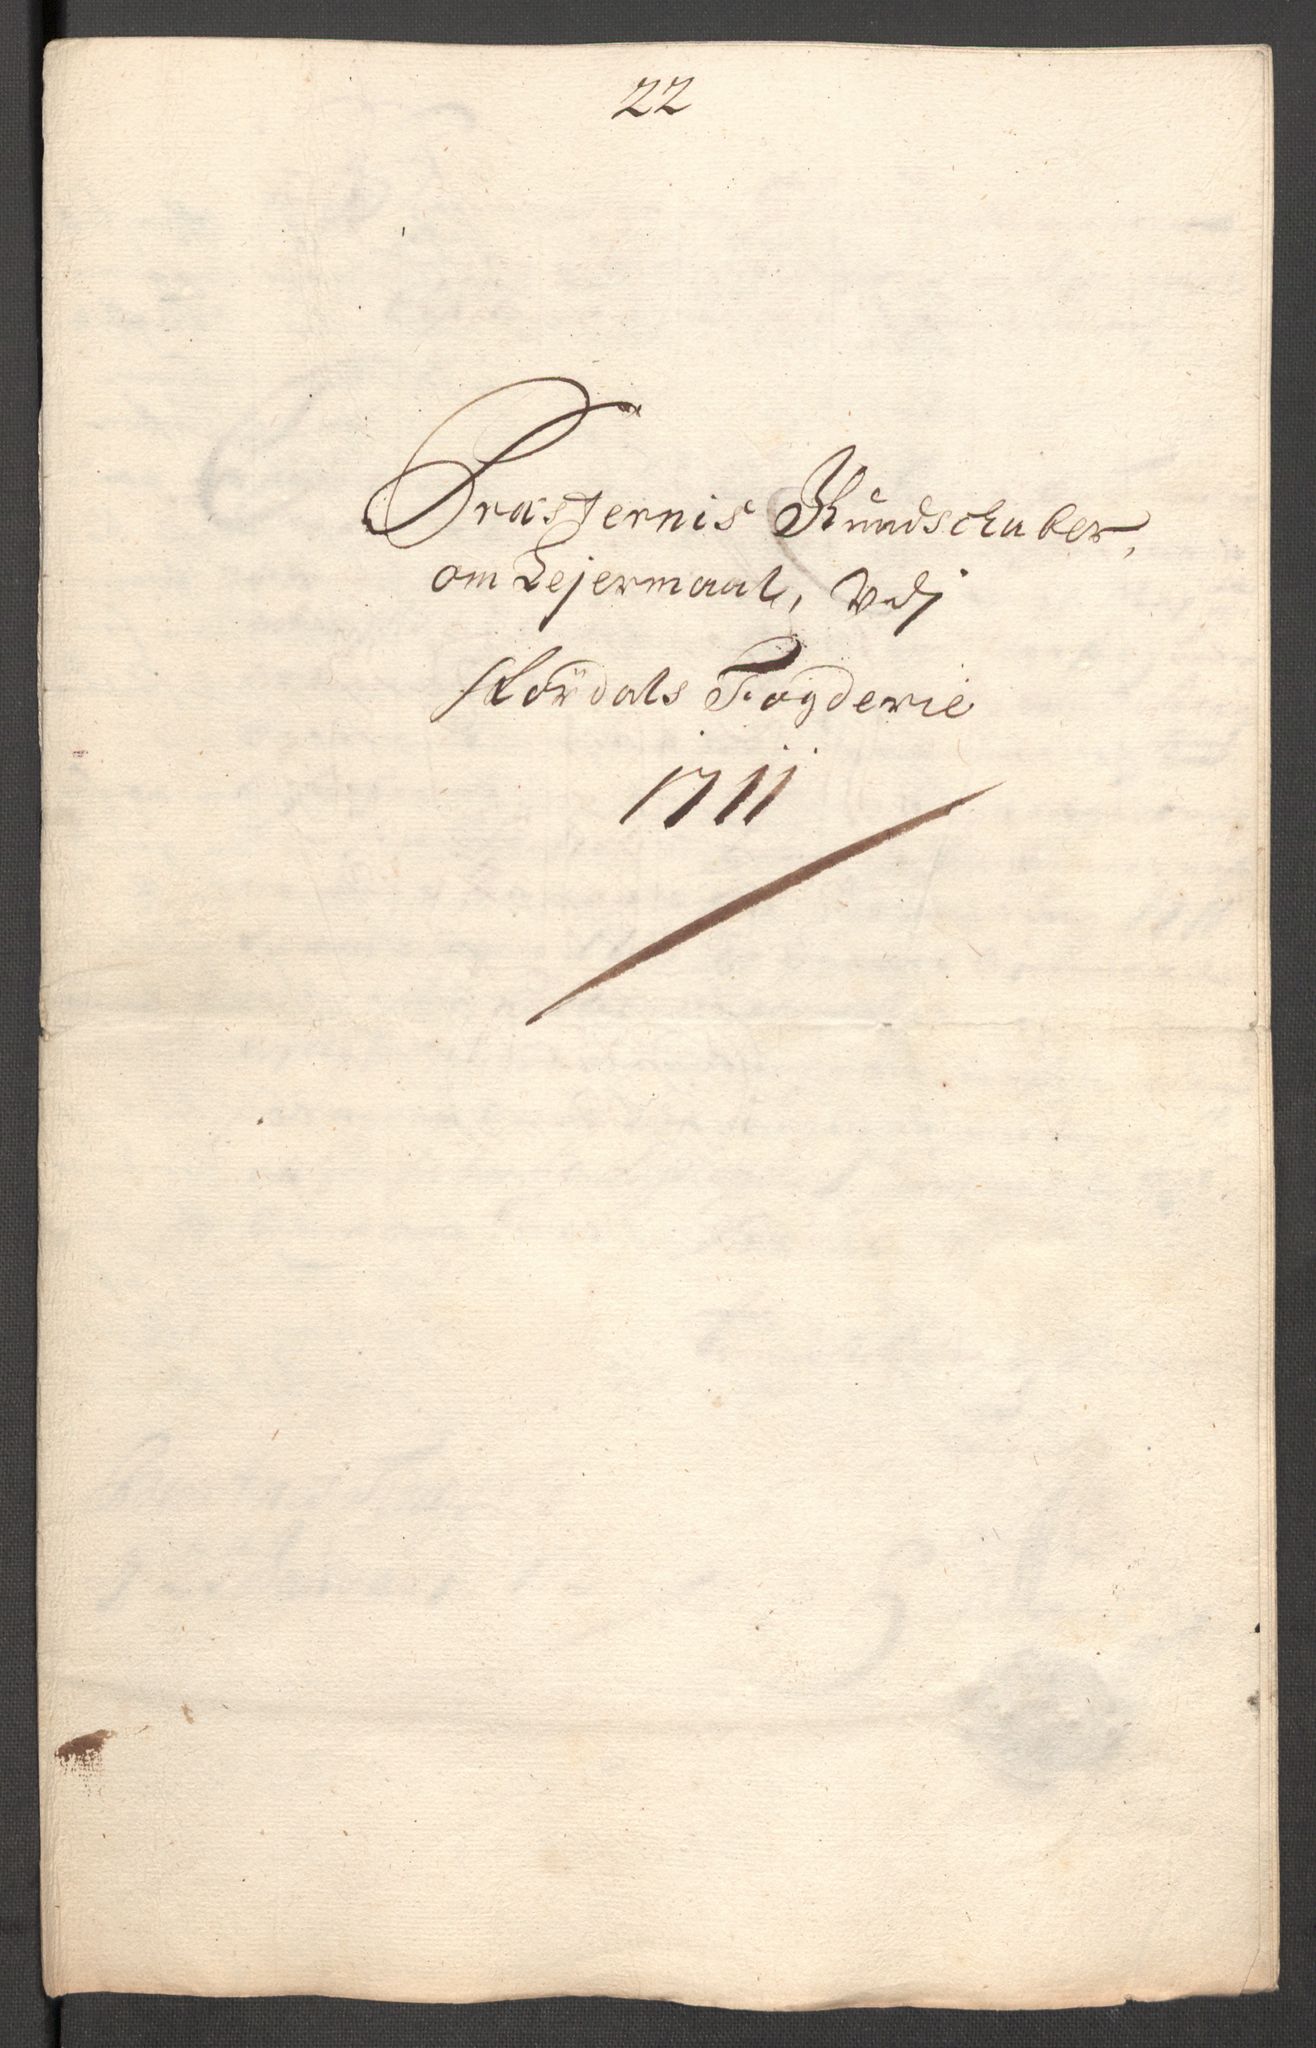 22
Præsternis Kundschaber,
om Lejermaal, Udj
Størdals Fogderie
1711